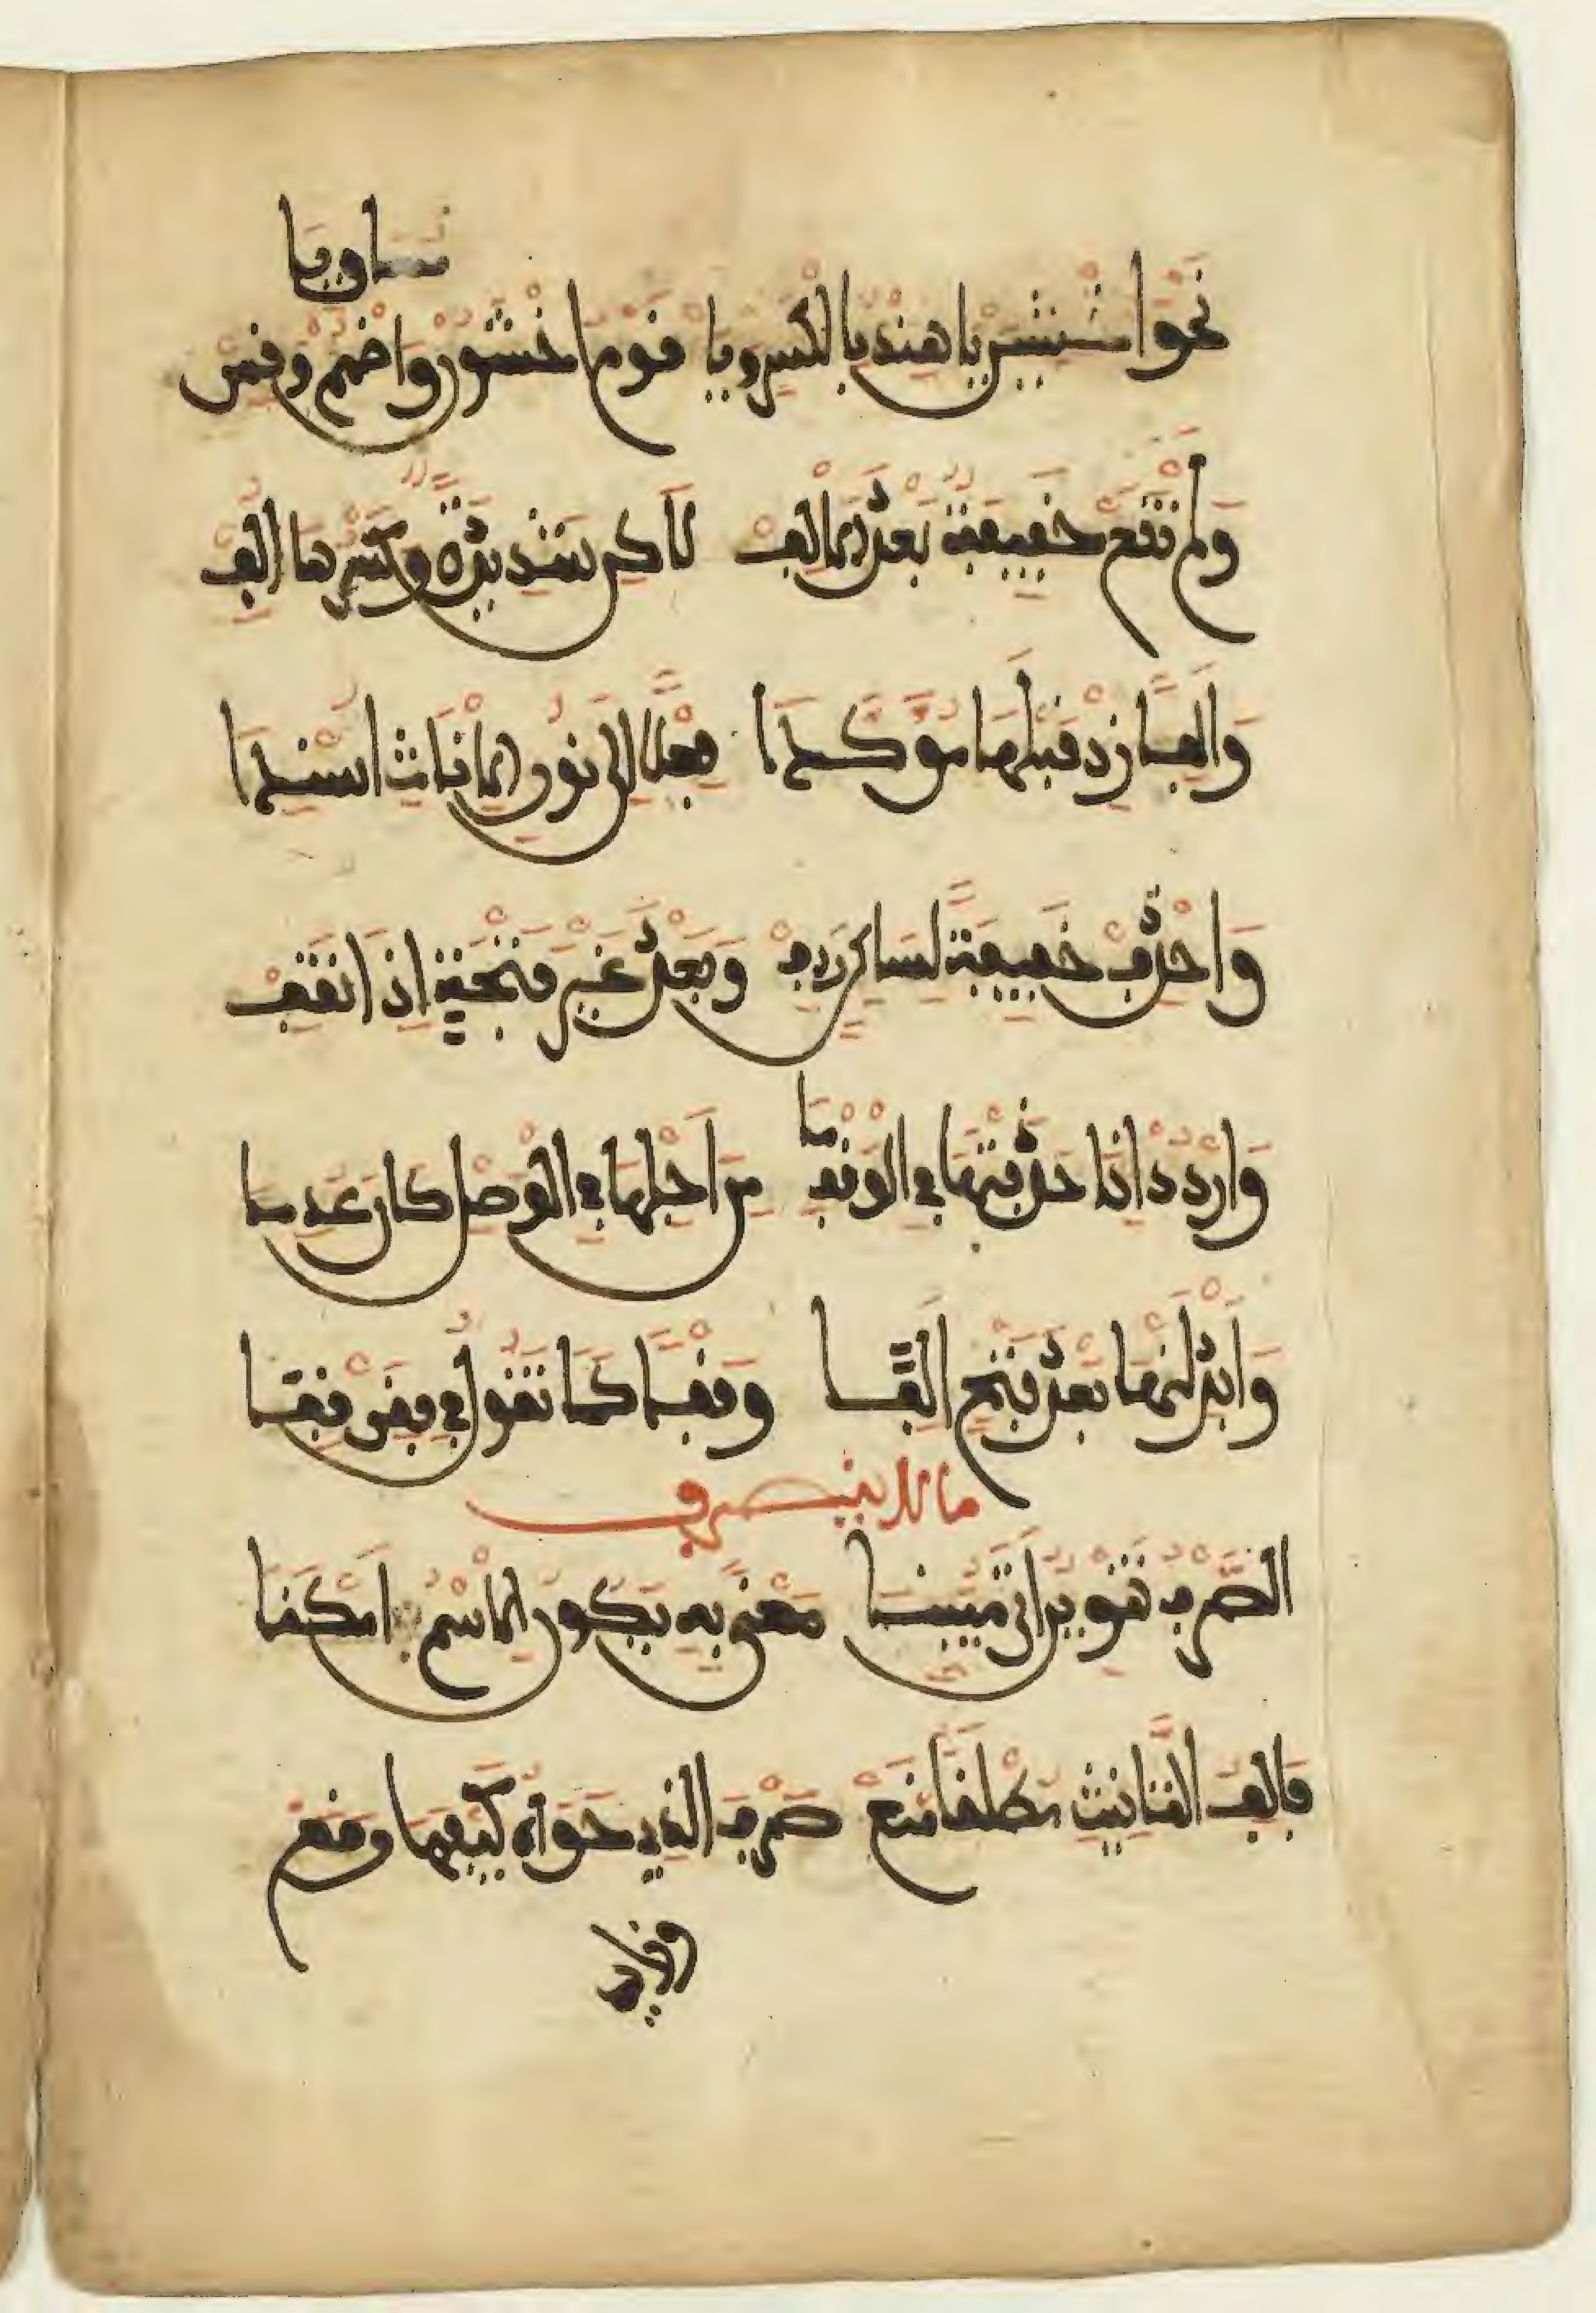 نَحْوَ اخْشَيِنْ يَا هِنْدُ بِالْكَسْرِ وَيَا قَوْمِ اخْشَوُنْ وَاضْمُمْ وَقِسْ مُسَاوِيَا
وَلَمْ تَقَعْ خَفِيفَةٌ بَعْدَ الْأَلِفْ لَاكِنْ شَدِيدَةٌ وَكَسْرُهَا أُلِفْ
وَأَلِفًا زِدْ قَبْلَهَا مُؤَكِّدَا فِعْلًا إِلَى نُونِ الْإِنَاثِ أُسْنِدَا
وَاحْذِفْ خَفِيفَةً لِسَاكِنٍ رَدِفْ وَبَعْدَ غَيْرِ فَتْحَةٍ إِذَا تَقِفْ
وَارْدُدْ إِذَا حَذَفْتَهَا فِي الْوَقْفِ مَا مِنْ أَجْلِهَا فِي الْوَصْلِ كَانَ عُدِمَا
وَأَبْدِلَنْهَا بَعْدَ فَتْحٍ أَلِفَا وَقْفًا كَمَا تَقُولُ فِي قِفَنْ قِفَا
ما لا ينصرف
الصَّرْفُ تَنْوِينٌ أَتَى مُبَيِّنَا مَعْنًى بِهِ يَكُونُ الِاسْمُ أَمْكَنَا
فَأَلِفُ التَّانِيثِ مُطْلَقًا مَنَعْ صَرْفَ الَّذِي حَوَاهُ كَيْفَمَا وَقَعْ
وزايد